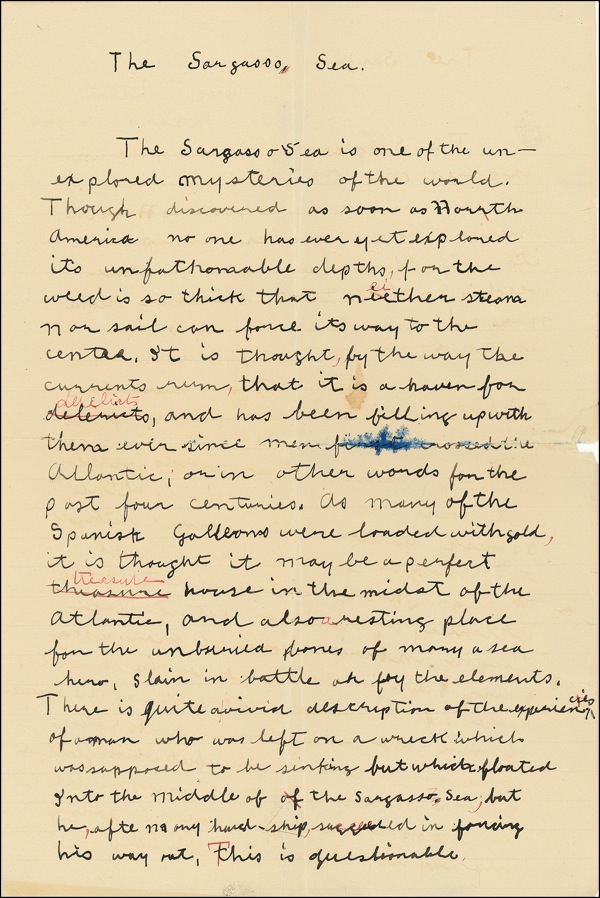 The Sargasso, Sea.
The Sargasso Sea is one of the un-
explored mysteries of the world.
Though discovered as soon as North
America no one has ever yet explored
its unfathomable depths, for the
weed is so thick that neither steam
nor sail can force its way to the
center. It is thought, by the way the
currents rum, that it is a haven for
derelicts
delericts, and has been filling up with
them ever since men first crossed the
Atlantic; or in other words for the
past four centuries. As many of the
Spanish Galleons were loaded with gold,
it is thought it may be a perfect
treasure
threasure house in the midst of the
Atlantic, and also a resting place
for the unburied bones of many a sea
hero, slain in battle or by the elements.
There is quite a vivid description of the experiences
of a man who was left on a wreck which
was supposed to be sinking but which floated
into the middle of of the Sargasso Sea, but
he, afte many hard-ship, succeeded in forcing
his way out, This is questionable.